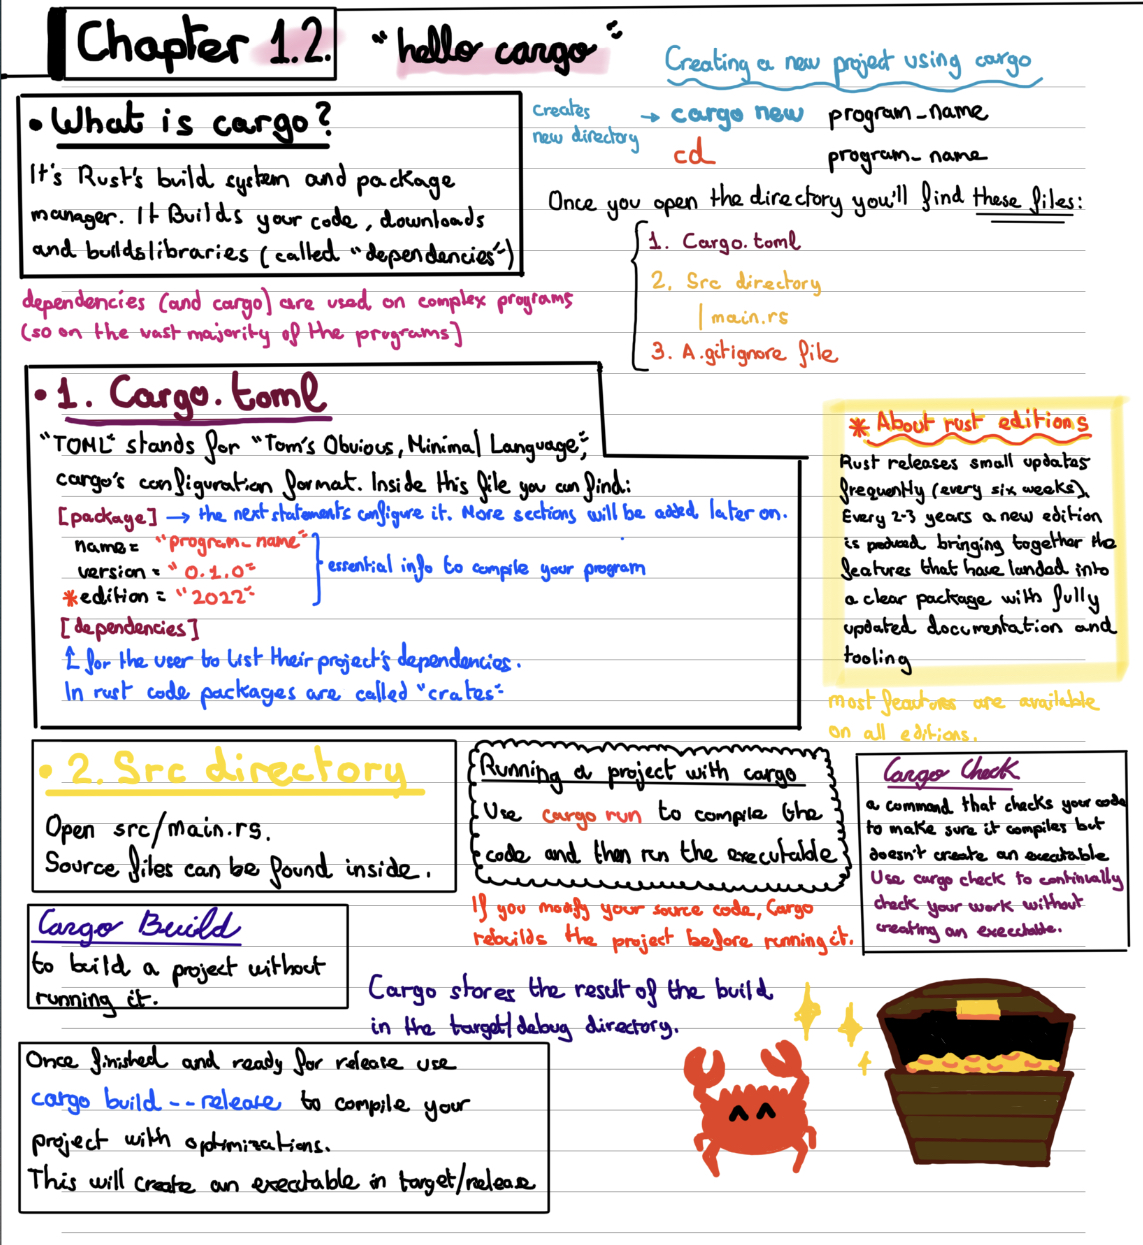 Chapter 1.2. "hello cargo"
• What is cargo?
It's Rust's build system and package
manager. It Builds your code, downloads
and builds libraries (called "dependencies")
dependencies (and cargo) are used on complex programs
(so on the vast majority of the programs)
Creating a new project using cargo
creates
new directory
→ cargo new program_name
cd program_name
Once you open the directory you'll find these files:
1. Cargo.toml
2. Src directory
| main.rs
3. A.gitignore file
• 1. Cargo.toml
"TOML" stands for "Tom's Obvious, Minimal Language",
cargo's configuration format. Inside this file you can find:
[package] → the next statements configure it. More sections will be added later on.
name = "program_name"
version = "0.1.0"
*edition = "2022"
essential info to compile your program
[dependencies]
↑ for the user to list their project's dependencies.
In rust code packages are called "crates"
* About rust editions
Rust releases small updates
frequently (every six weeks).
Every 2-3 years a new edition
is produced bringing together the
features that have landed into
a clear package with fully
updated documentation and
tooling
most features are available
on all editions.
• 2. Src directory
Open src/main.rs.
Source files can be found inside.
Running a project with cargo
Use cargo run to compile the
code and then run the executable
If you modify your source code, Cargo
rebuilds the project before running it.
Cargo Check
a command that checks your code
to make sure it compiles but
doesn't create an executable
Use cargo check to continually
check your work without
creating an executable.
Cargo Build
to build a project without
running it.
Cargo stores the result of the build
in the target/debug directory.
Once finished and ready for release use
cargo build --release to compile your
project with optimizations.
This will create an executable in target/release